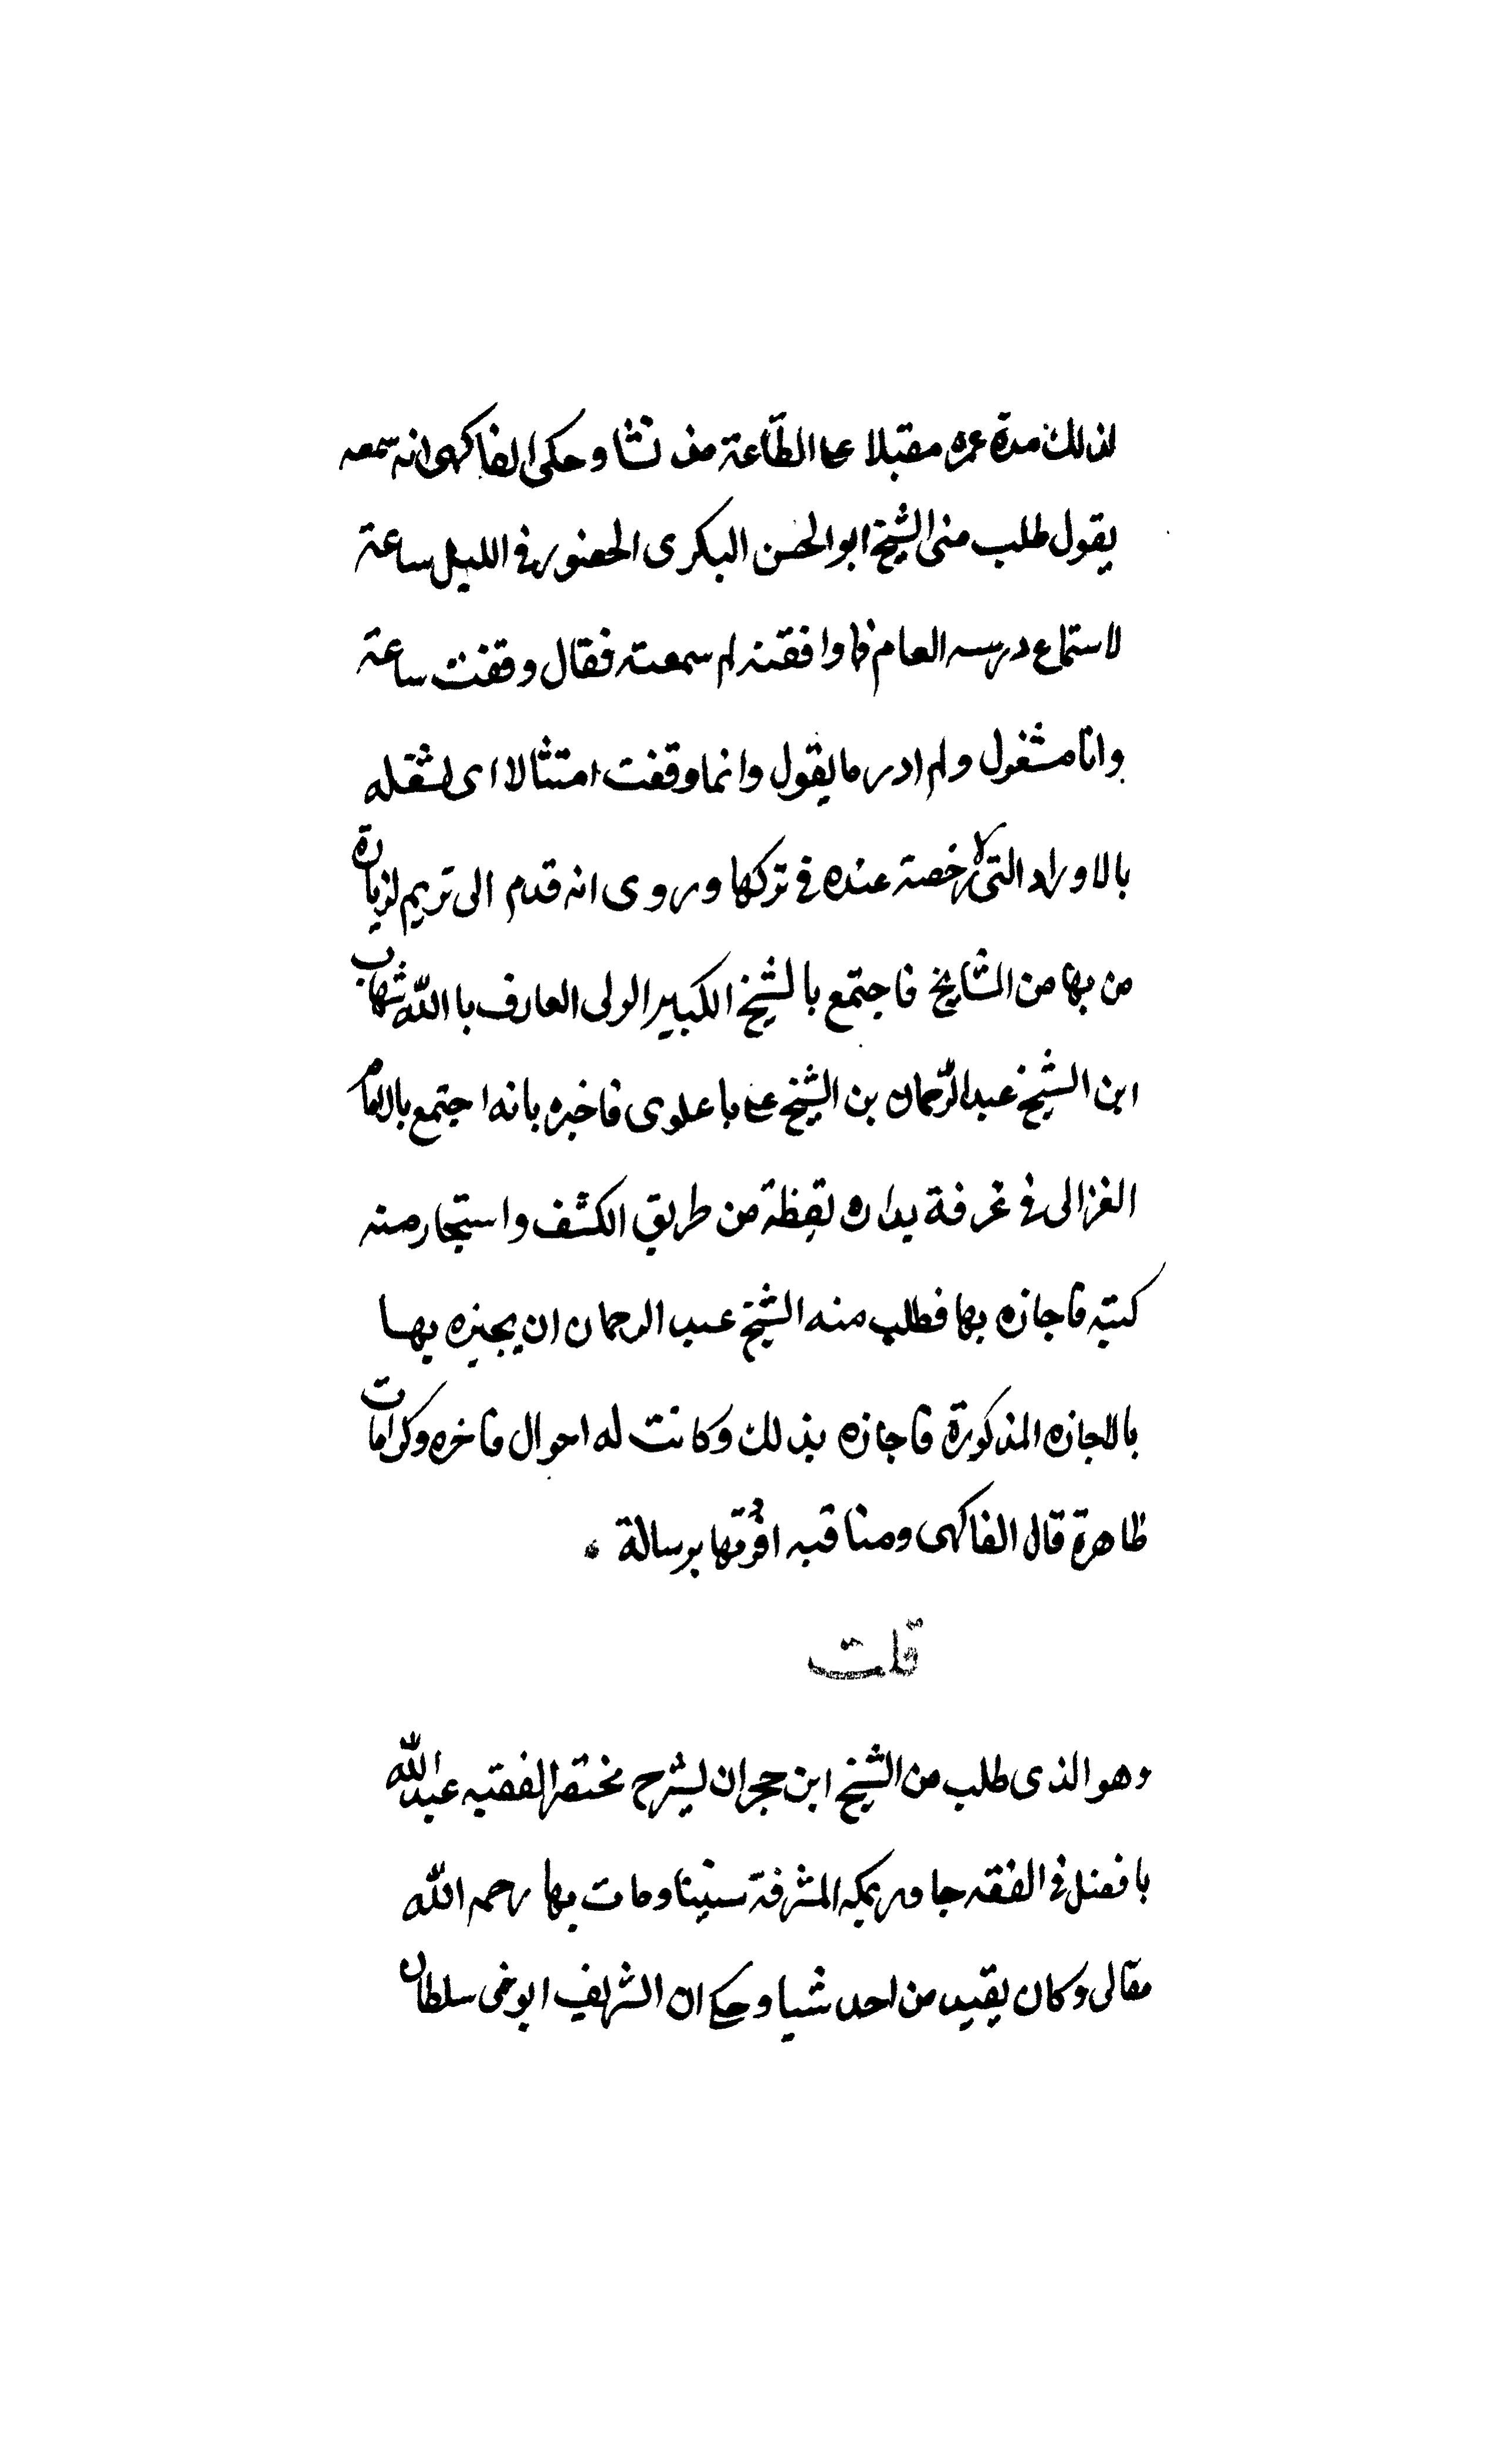 لذلك مدة عمره مقبلا على الطّاعة منذ نشا وحكى الفاكهى انه سمعه
يقول طلب منى الشيخ ابو الحسن البكرى الحضور فى الليل ساعة
لاستماع درسه العام فما وافقته لم سمعته فقال وقفت ساعة
وانا مشغول ولم ادر ما يقول وانما وقفت امتثالا اى لشغله
بالاوراد التى لا رخصة عنده فى تركها وروى انه قدم الى تريم لزيارة
من بها من المشايخ فاجتمع بالشيخ الكبير الولى العارف با الله شهاب
ابن الشيخ عبد الرّحمان بن الشيخ على باعلوى فاخبره بانه اجتمع بالامام
الغزالى فى غرفة بداره يقظة من طريق الكشف واستجار منه
كتبه فاجازه بها فطلب منه الشيخ عبد الرحمان ان يجيزه بها
بالاجازه المذكورة فاجازه بذلك وكانت له احوال فاخره وكرامات
ظاهرة قال الفاكهى ومناقبه افردتها برسالة .
قلت
وهو الذى طلب من الشيخ ابن حجر ان ليشرح مختصر الفقيه عبد الله
بافضل فى الفقه جاور بمكه المشرفة سنينا ومات بها رحمه الله
مقالى وكان يقيد من احد شيا وحكى ان الشريف ابو نمى سلطان